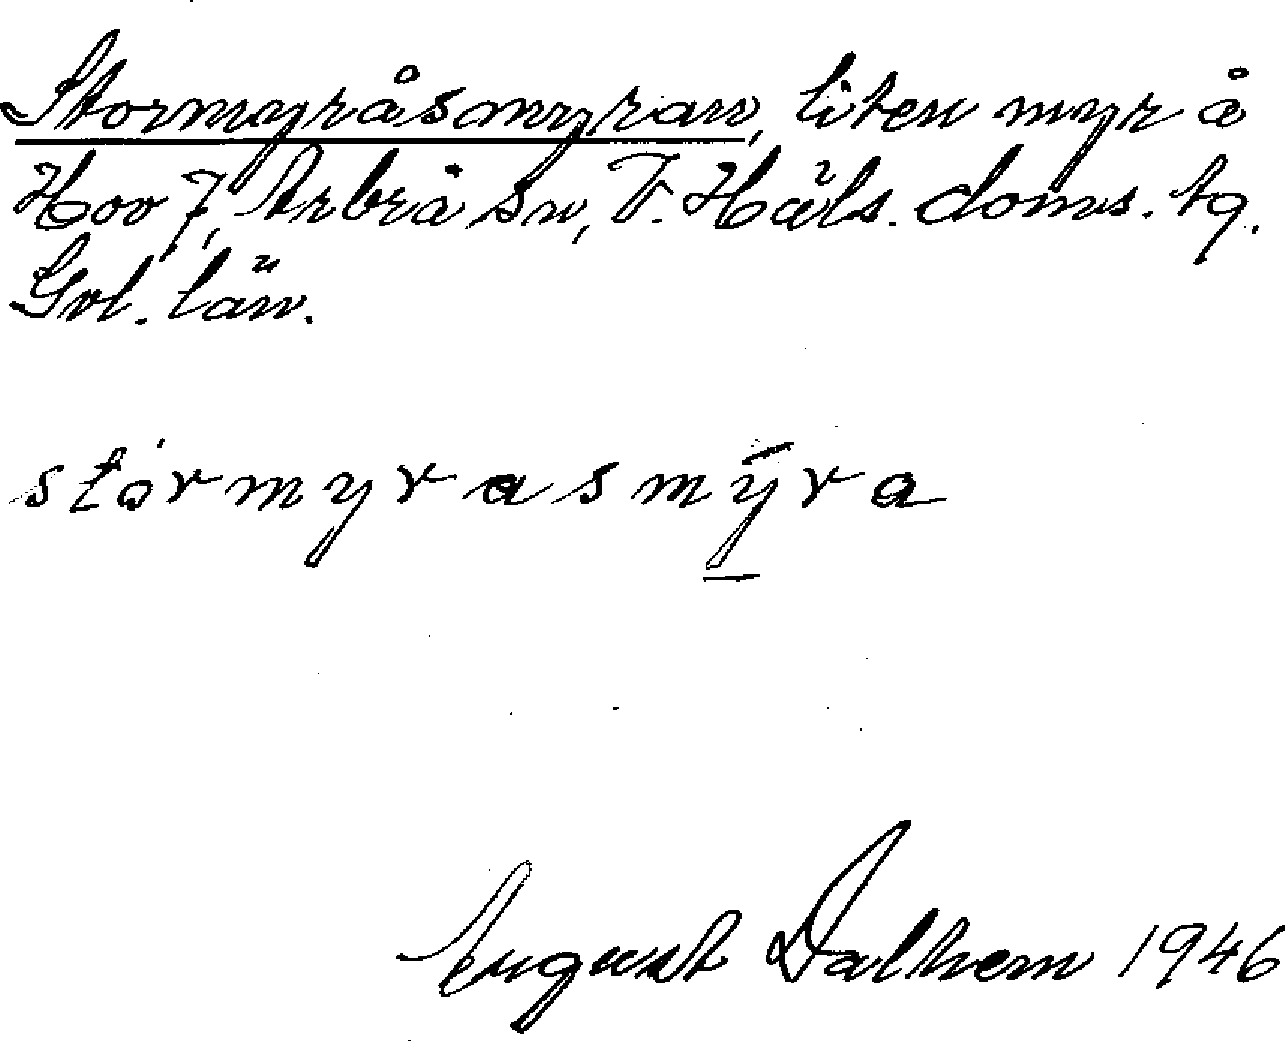 Stormyråsmyran, liten myr å
Hov 7, Arbrå sn, V. Häls. doms. tg.
Gvl. län.
stórmyrasmýra
August Dalhem 1946